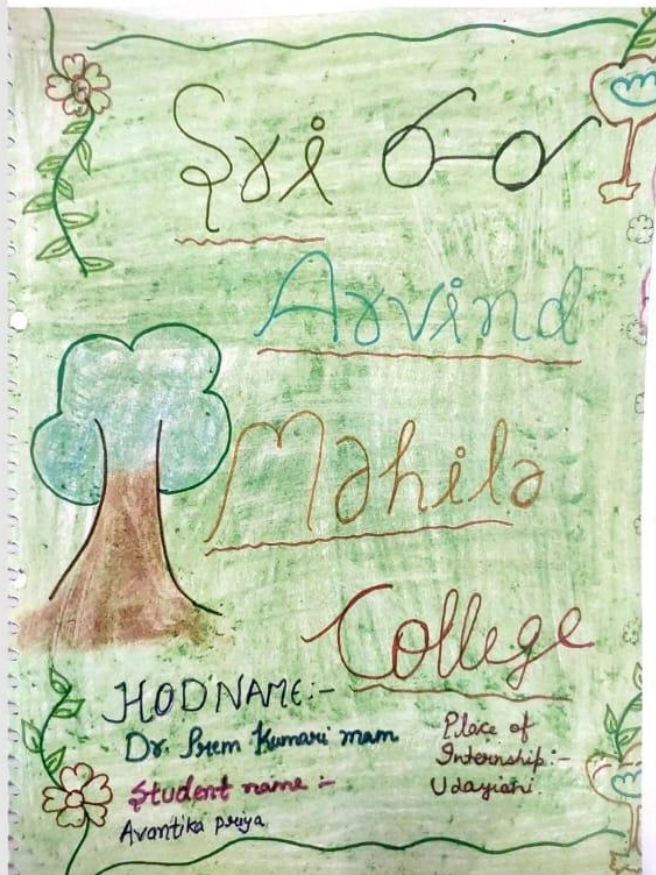 Sri
Arvind
Mahila
College
HOD NAME:-
Dr. Prem Kumari mam
Student name :-
Avantika priya
Place of
Internship:-
Udayiani.